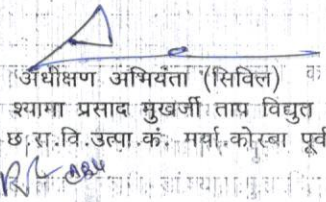 अधीक्षण अभियंता (सिविल)
श्यामा प्रसाद मुखर्जी ताप विद्युत
छ.रा.वि.उत्पा.कं. मर्या.कोरबा पूर्व